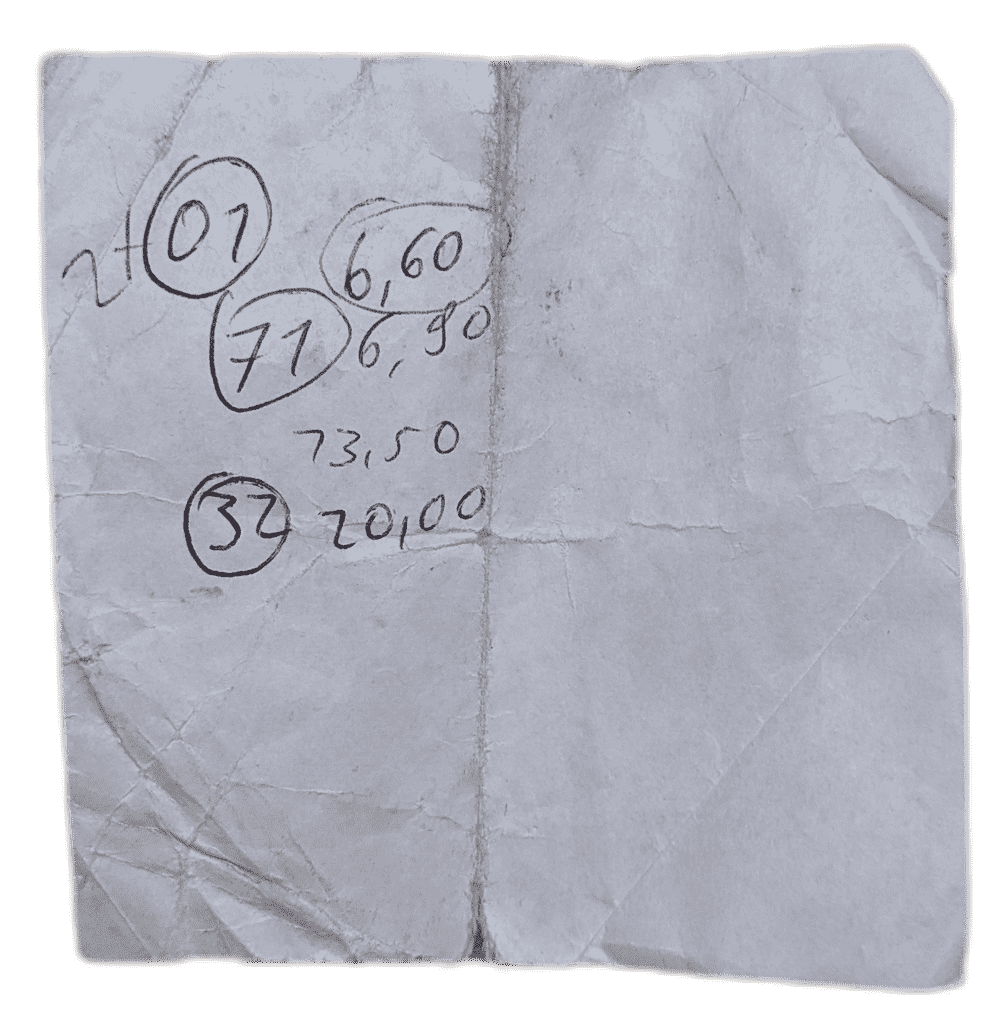 01 6,60
71 6,90
13,50
32 20,00